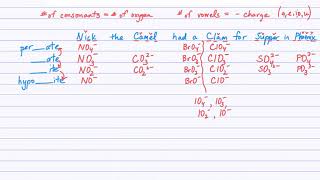 # of consonants = # of oxygen # of vowels = - charge (a,e,i,o,u)
Nick the Camel had a Clam for Supper in Phoenix
per___ate NO₄⁻ BrO₄⁻ ClO₄⁻
___ate NO₃⁻ CO₃²⁻ BrO₃⁻ ClO₃⁻ SO₄²⁻ PO₄³⁻
___ite NO₂⁻ CO₂²⁻ BrO₂⁻ ClO₂⁻ SO₃²⁻ PO₃³⁻
hypo___ite NO⁻ BrO⁻ ClO⁻
IO₄⁻, IO₃⁻,
IO₂⁻, IO⁻